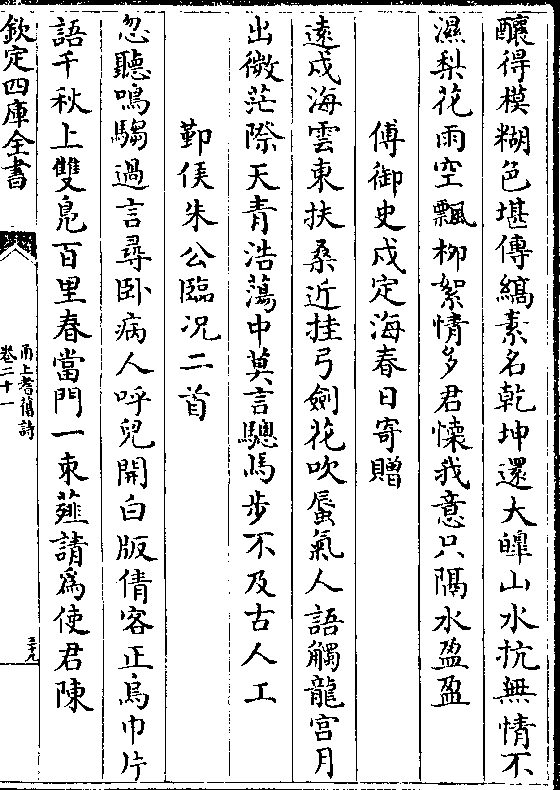 釀得模糊色堪傳縞素名乾坤還大皥山水抗無情不
濕梨花雨空飄柳絮情多君懷我意只隔水盈盈
傅御史戍定海春日寄贈
遠戍海雲東扶桑近挂弓劍花吹蜃氣人語觸龍宫月
出微茫際天青浩蕩中莫言驄馬步不及古人工
鄞侯朱公臨况二首
忽聽鳴騶過言尋卧病人呼兒開白版倩客正烏巾片
語千秋上雙鳬百里春當門一束薤請為使君陳
欽定四庫全書
甬上耆舊詩
卷二十一
三十九